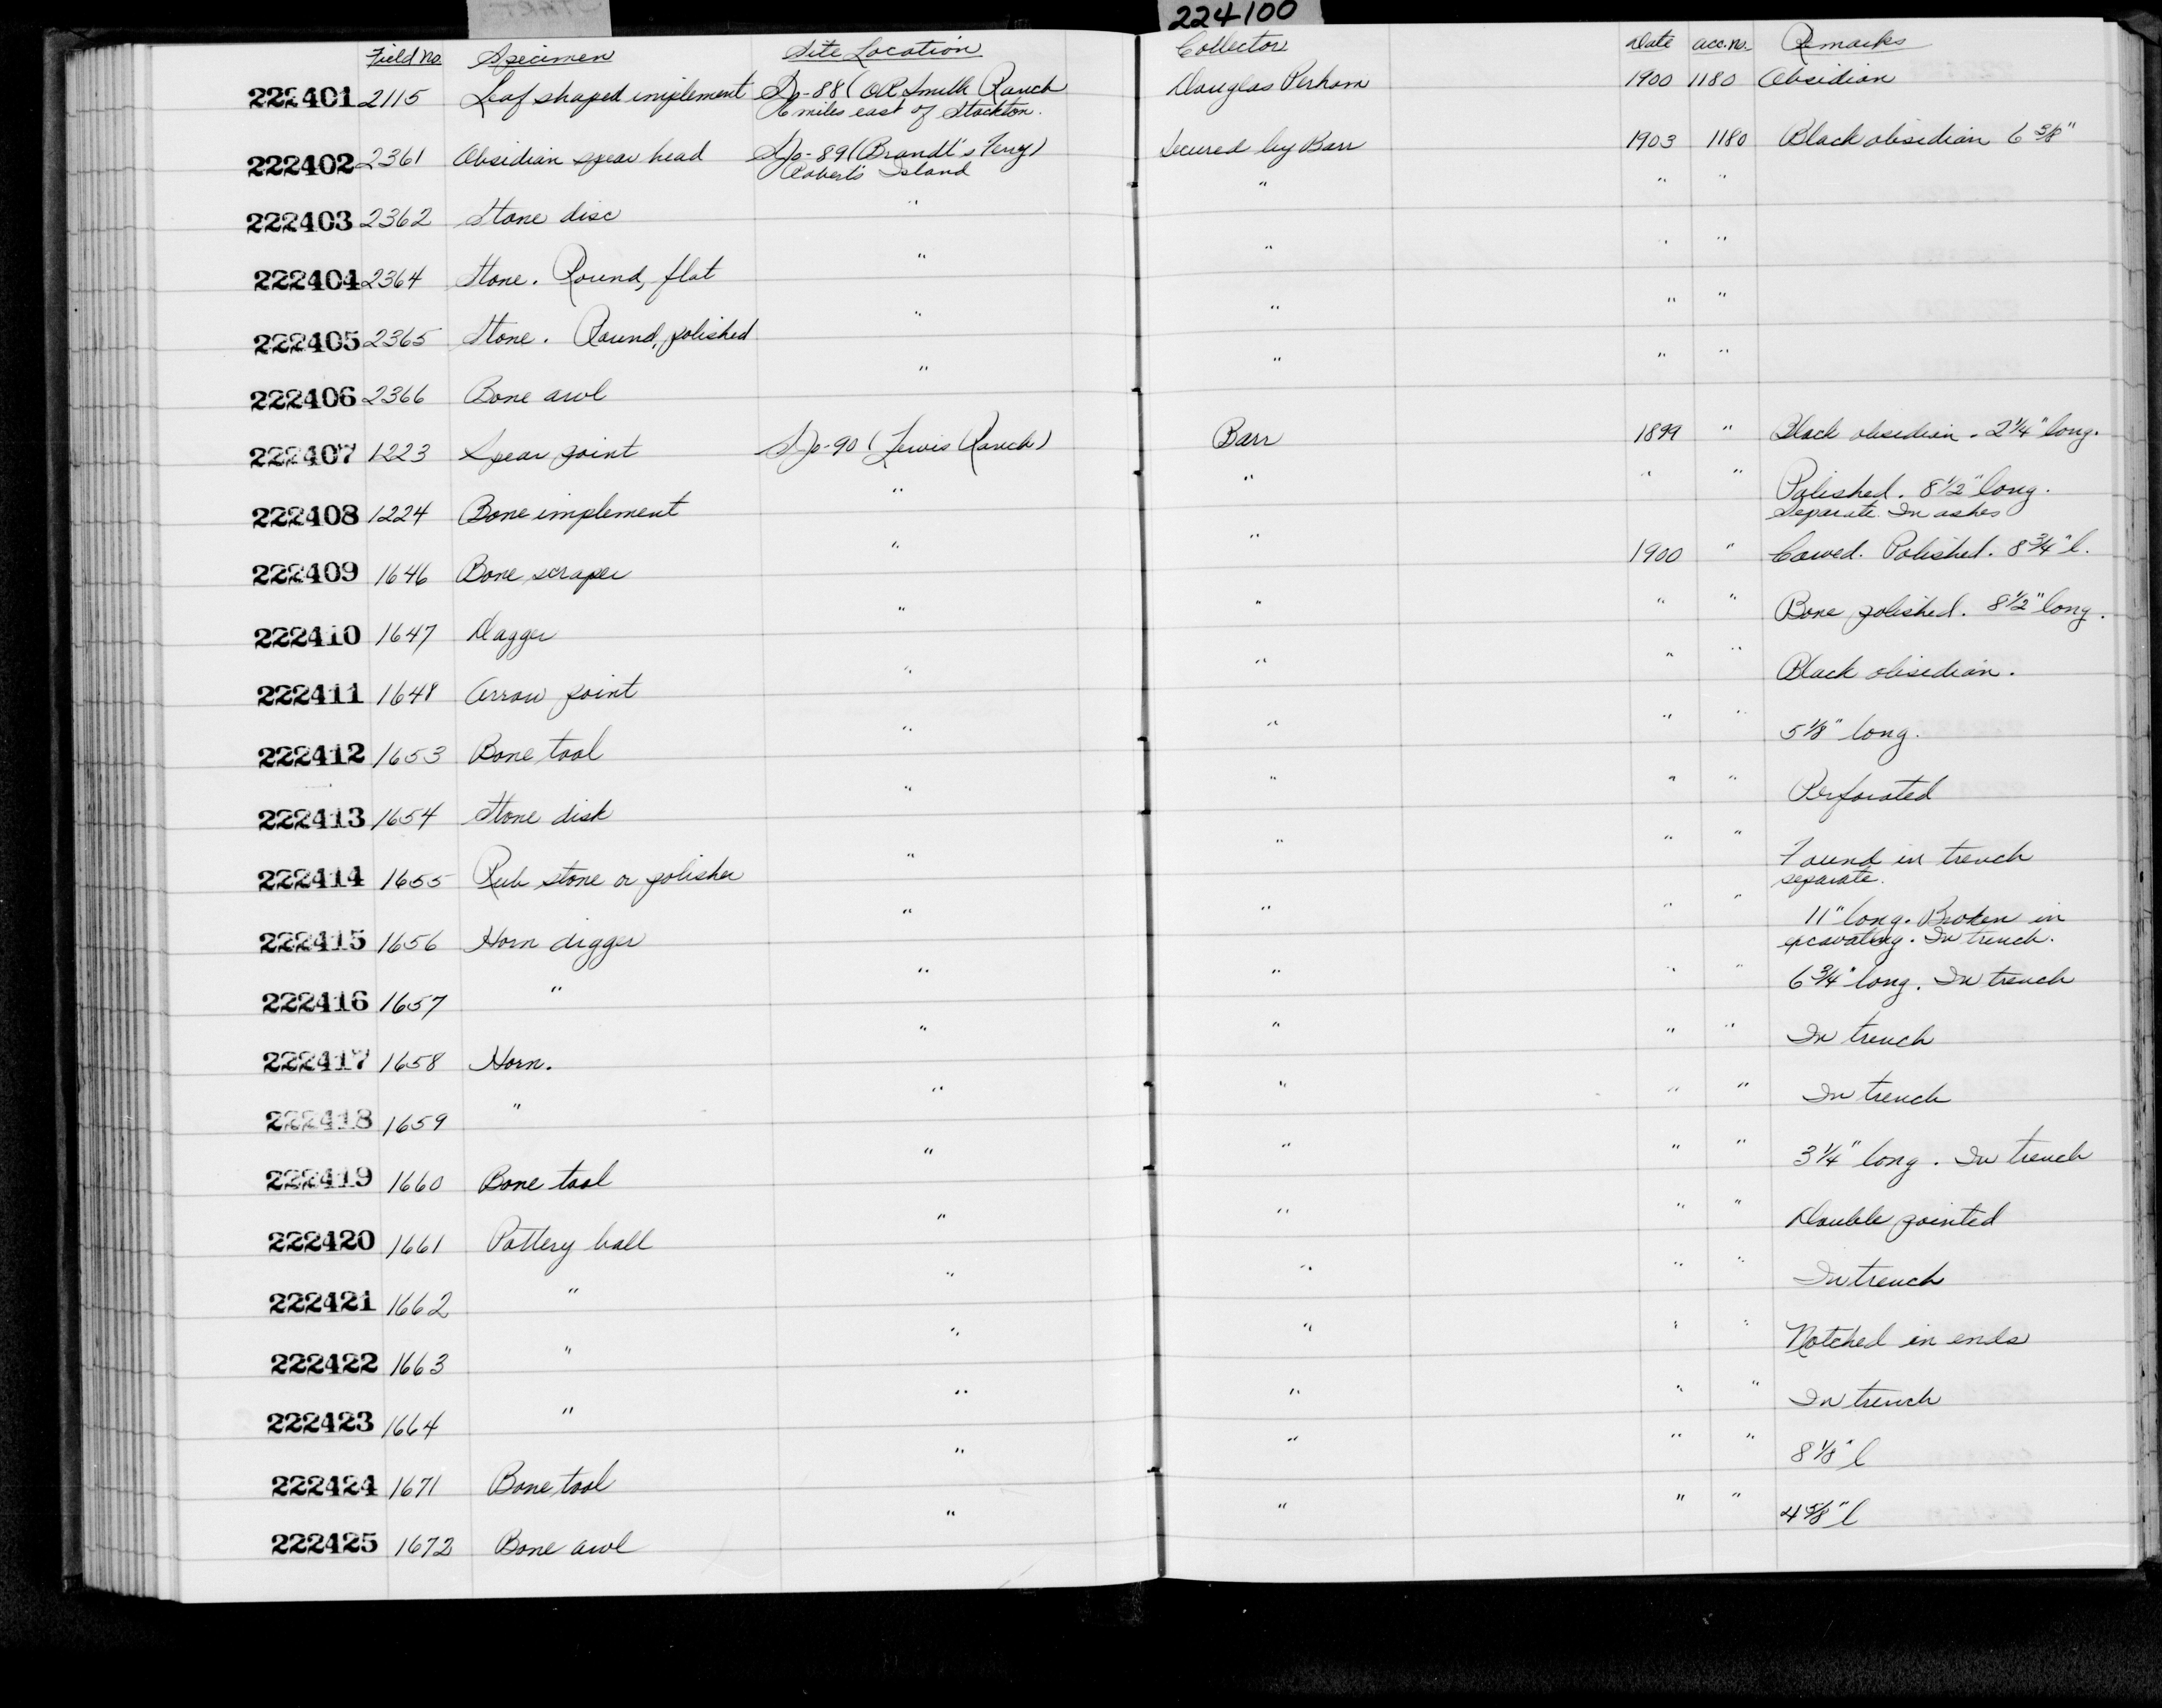 224100
Field No. Specimen Site Location Collector Date acc. no. Remarks
222401 2115 Leaf shaped implement SJo-88 (OR Smith Ranch Douglas Perham 1900 1180 Obsidian
6 miles east of Stockton.
222402 2361 Obsidian spear head SJo-89 (Brandt's Ferry) Secured by Barr 1903 1180 Black obsidian 6 3/8"
Robert's Island
222403 2362 Stone disc " " " "
222404 2364 Stone. Round, flat " " " "
222405 2365 Stone. Round, polished " " " "
222406 2366 Bone awl " " " "
222407 1223 Spear point SJo-90 (Lewis Ranch) Barr 1899 " Black obsidian. 2 1/4" long.
222408 1224 Bone implement " " " " Polished. 8 1/2" long.
Separate. In ashes
222409 1646 Bone scraper " " 1900 " Carved. Polished. 8 3/4" l.
222410 1647 Dagger " " " " Bone polished. 8 1/2" long.
222411 1648 Arrow point " " " " Black obisedian.
222412 1653 Bone tool " " " " 5 1/8" long.
222413 1654 Stone disk " " " " Perforated
222414 1655 Rub stone or polisher " " " " Found in trench
separate.
222415 1656 Horn digger " " " " 11" long. Broken in
excavating. In trench.
222416 1657 " " " " " 6 3/4" long. In trench
222417 1658 Horn. " " " " In trench
222418 1659 " " " " " In trench
222419 1660 Bone tool " " " " 3 1/4" long. In trench
222420 1661 Pottery ball " " " " Double pointed
222421 1662 " " " " " In trench
222422 1663 " " " " " Notched in ends
222423 1664 " " " " " In trench
222424 1671 Bone tool " " " " 8 1/8" l
222425 1672 Bone awl " " " " 4 5/8" l